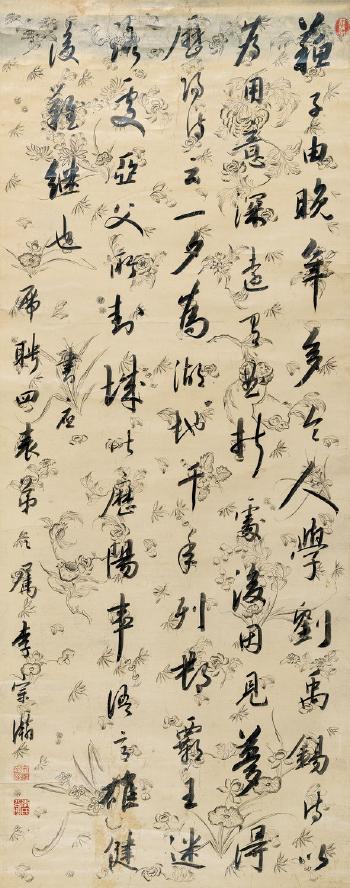 蘇子由晚年多令人學劉禹錫詩以
為用意深遠有曲折處後因見夢得
歷陽詩云一夕為湖地千年列郡霸王迷
路處亞父所封城皆歷陽事語言雄健
後難繼也
書應
四表弟屬李宗瀚